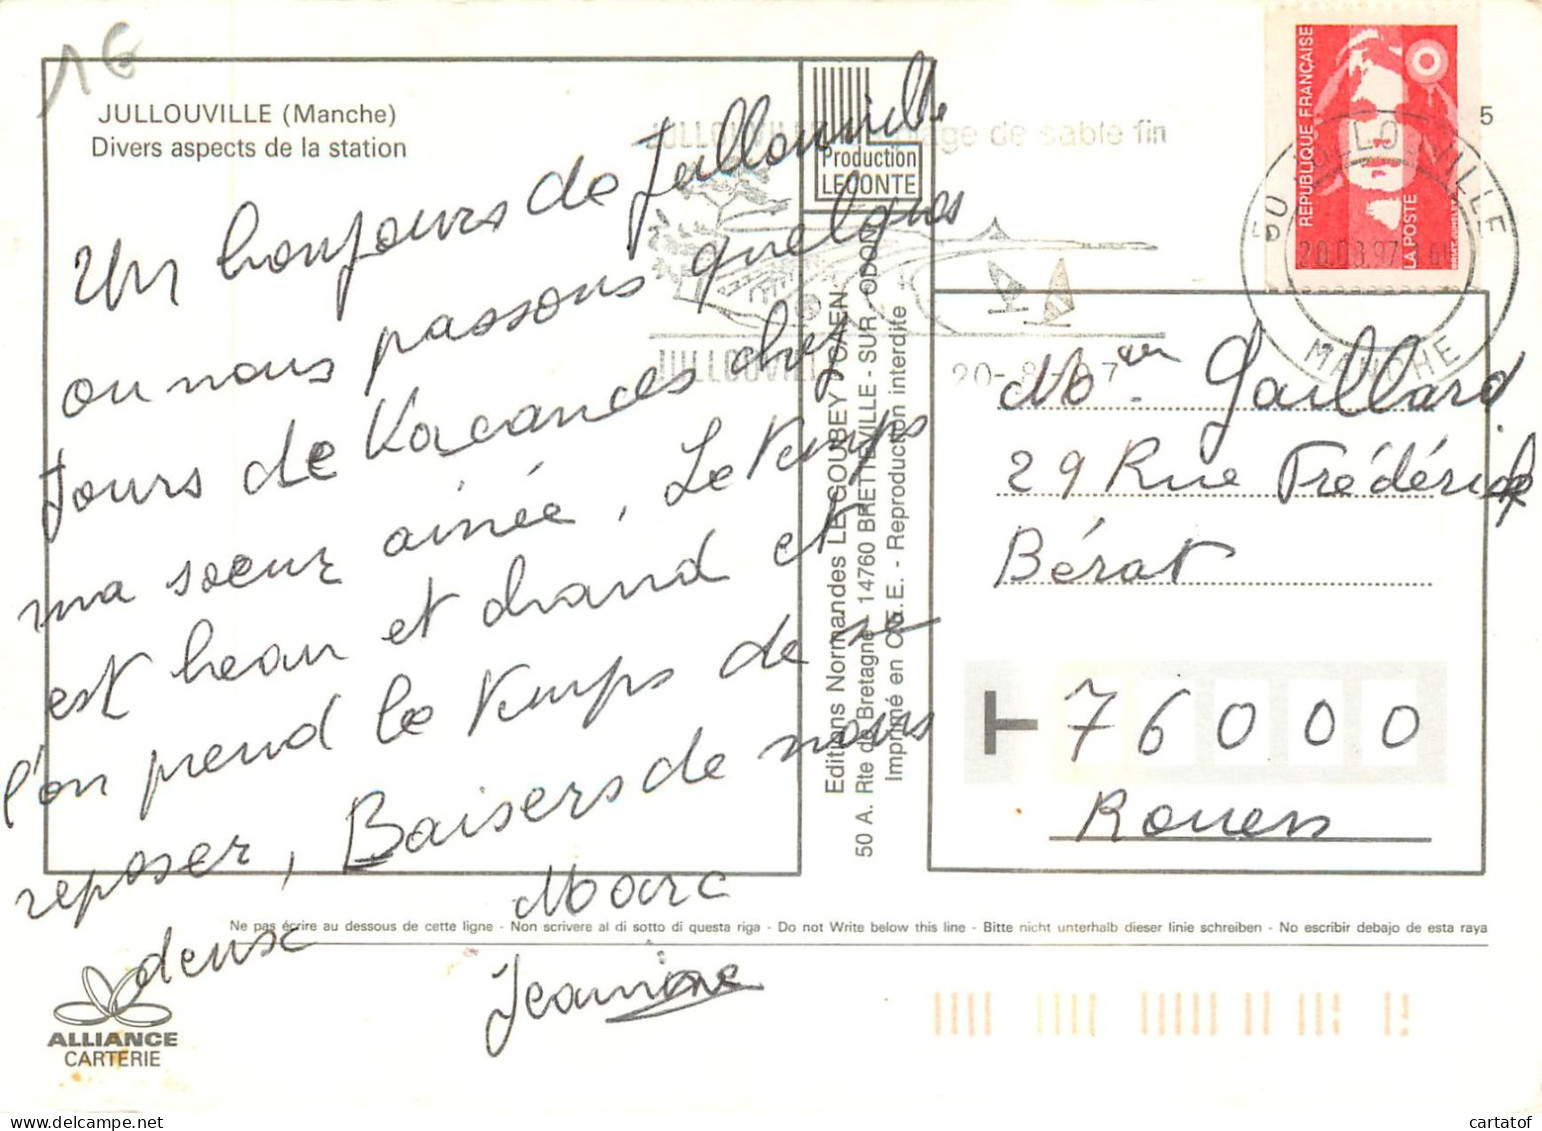 1€
JULLOUVILLE (Manche)
Divers aspects de la station
Un bonjours de Jullouville
ou nous passons quelques
Jours de Vacances chez
ma soeur ainée, Le temps
est beau et chaud et
l'on prend le temps de se
reposer, Baisers de nous
deux
Marc
Jeanine
Production
LECONTE
JULLOUVILLE plage de sable fin
JULLOUVILLE
20-8-97
Editions Normandes LE GOUBEY CAEN.
50 A. Rte de Bretagne - 14760 BRETTEVILLE - SUR - ODON
Imprimé en C.E.E. - Reproduction interdite
REPUBLIQUE FRANÇAISE
LA POSTE
50 JULLOUVILLE
MANCHE
5
Mr Gaillard
29 Rue Frédérick
Bérat
76000
Rouen
Ne pas écrire au dessous de cette ligne - Non scrivere al di sotto di questa riga - Do not Write below this line - Bitte nicht unterhalb dieser linie schreiben - No escribir debajo de esta raya
ALLIANCE
CARTERIE
cartatof